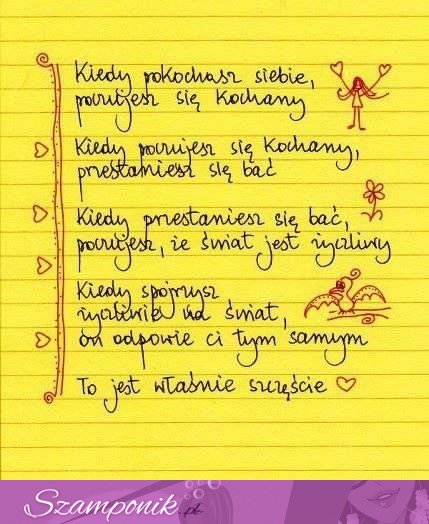 Kiedy pokochasz siebie,
poczujesz się kochany
Kiedy poczujesz się kochany,
przestaniesz się bać
Kiedy przestaniesz się bać,
poczujesz, że świat jest życzliwy
Kiedy spojrzysz
życzliwie na świat,
on odpowie ci tym samym
To jest właśnie szczęście
Szamponik.pl